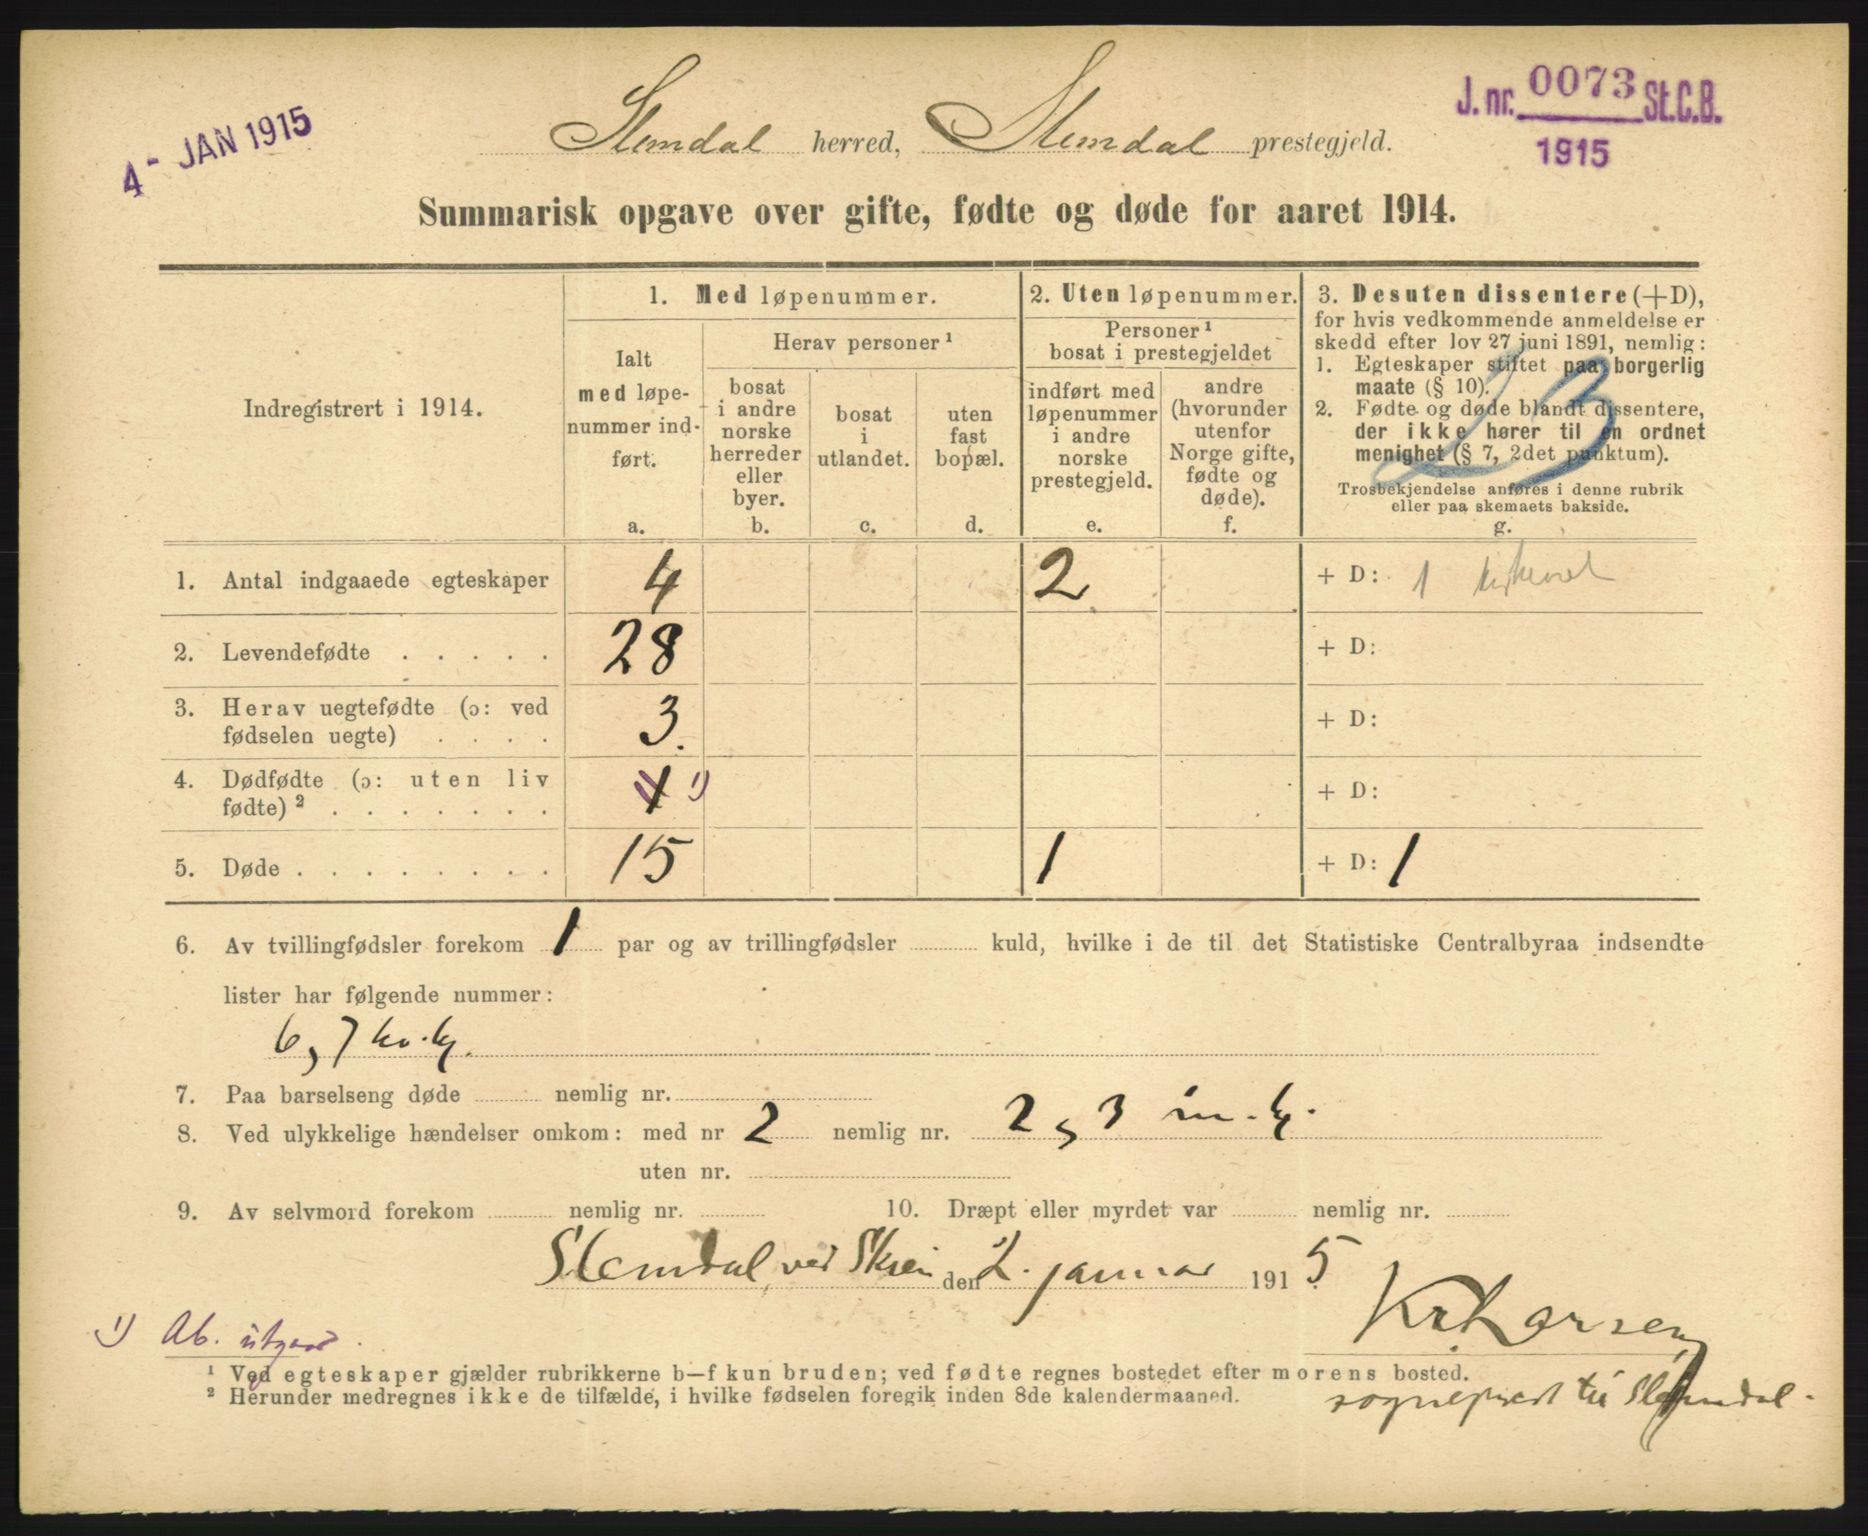 4 - JAN 1915
Slemdal herred, Slemdal prestegjeld.
J. nr. 0073 St.C.B.
1915
Summarisk opgave over gifte, fødte og døde for aaret 1914.
Indregistrert i 1914.
1. Med løpenummer.
Ialt
med løpe-
nummer ind-
ført.
a.
Herav personer ¹
bosat
i andre
norske
herreder
eller
byer.
b.
bosat
i
utlandet.
c.
uten
fast
bopæl.
d.
2. Uten løpenummer.
Personer ¹
bosat i prestegjeldet
indført med
løpenummer
i andre
norske
prestegjeld.
e.
andre
(hvorunder
utenfor
Norge gifte,
fødte og
døde).
f.
3. Desuten dissentere (+D),
for hvis vedkommende anmeldelse er
skedd efter lov 27 juni 1891, nemlig:
1. Egteskaper stiftet paa borgerlig
maate (§ 10).
2. Fødte og døde blandt dissentere,
der ikke hører til en ordnet
menighet (§ 7, 2det punktum).
Trosbekjendelse anføres i denne rubrik
eller paa skemaets bakside.
g.
23
1. Antal indgaaede egteskaper 4 2 + D: 1
2. Levendefødte . . . . . 28 + D:
3. Herav uegtefødte (ɔ: ved
fødselen uegte) . . . . 3. + D:
4. Dødfødte (ɔ: uten liv
fødte) ² . . . . . . . 1 ¹) + D:
5. Døde . . . . . . . . 15 1 + D: 1
6. Av tvillingfødsler forekom 1 par og av trillingfødsler kuld, hvilke i de til det Statistiske Centralbyraa indsendte
lister har følgende nummer:
6, 7 kv.kj.
7. Paa barselseng døde nemlig nr.
8. Ved ulykkelige hændelser omkom: med nr 2 nemlig nr. 2, 3 m.kj.
uten nr.
9. Av selvmord forekom nemlig nr. 10. Dræpt eller myrdet var nemlig nr.
Slemdal, ved Skien den 2. januar 1915
Kr Larsen
¹) Ab. utgaar.
¹ Ved egteskaper gjælder rubrikkerne b—f kun bruden; ved fødte regnes bostedet efter morens bosted.
² Herunder medregnes ikke de tilfælde, i hvilke fødselen foregik inden 8de kalendermaaned.
sogneprest til Slemdal.